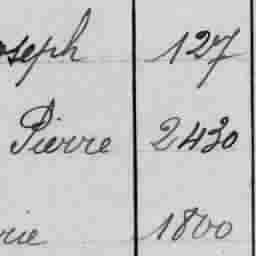 oseph 127
Pierre 2430
rie 1800